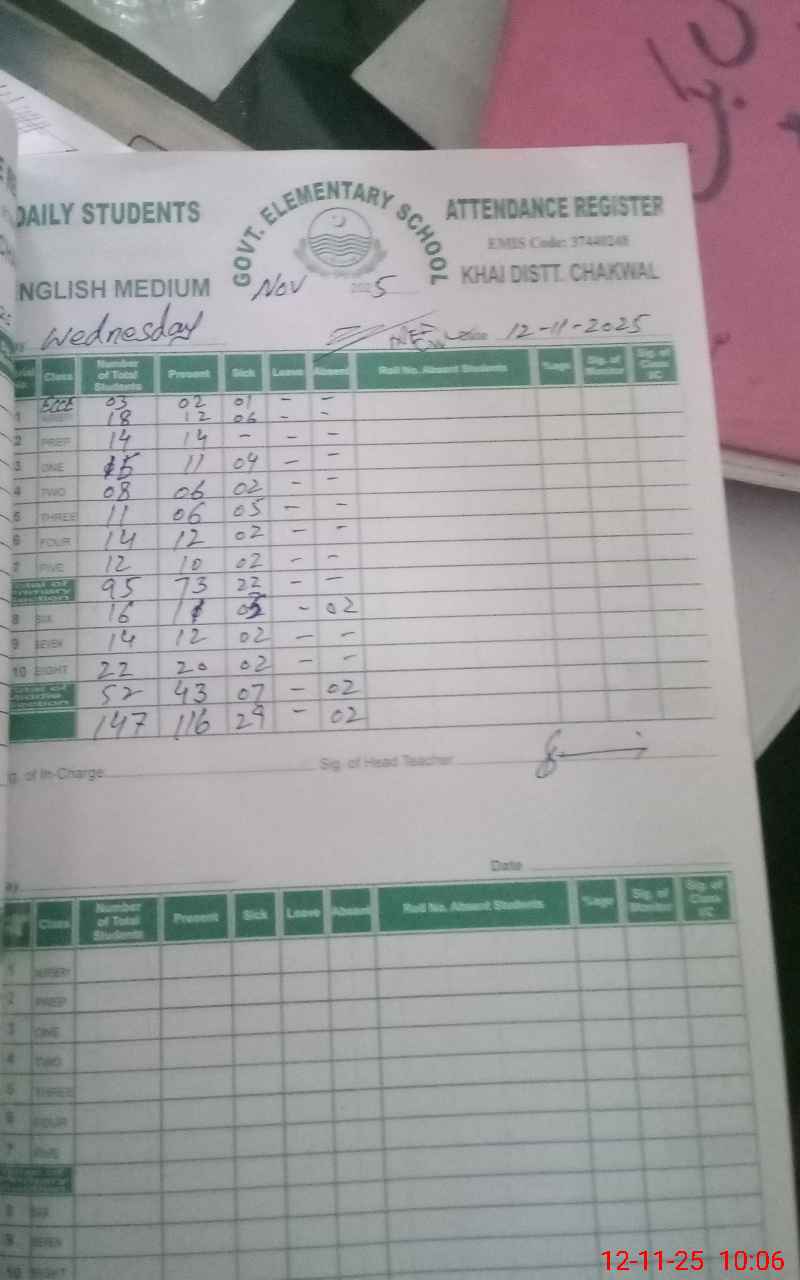 DAILY STUDENTS
GOVT. ELEMENTARY SCHOOL
ATTENDANCE REGISTER
EMIS Code: 37440248
NGLISH MEDIUM
Nov 2025
KHAI DISTT. CHAKWAL
Wednesday 12-11-2025
Class Number of Total Students Present Sick Leave Absent Roll No. Absent Students %age Sig. of Monitor Sig. of Class I/C
ECCE 03 02 01 - -
1 18 12 06 - -
2 PREP 14 14 - - -
3 ONE 15 11 04 - -
4 TWO 08 06 02 - -
5 THREE 11 06 05 - -
6 FOUR 14 12 02 - -
7 FIVE 12 10 02 - -
Total of Primary Section 95 73 22 - -
8 SIX 16 11 03 - 02
9 SEVEN 14 12 02 - -
10 EIGHT 22 20 02 - -
Total of Middle Section 52 43 07 - 02
147 116 29 - 02
g. of In-Charge: Sig. of Head Teacher
Date
Class Number of Total Students Present Sick Leave Absent Roll No. Absent Students %age Sig. of Monitor Sig. of Class I/C
1 NURSERY
2 PREP
3 ONE
4 TWO
5 THREE
6 FOUR
7 FIVE
8 SIX
9 SEVEN
10 EIGHT
12-11-25 10:06